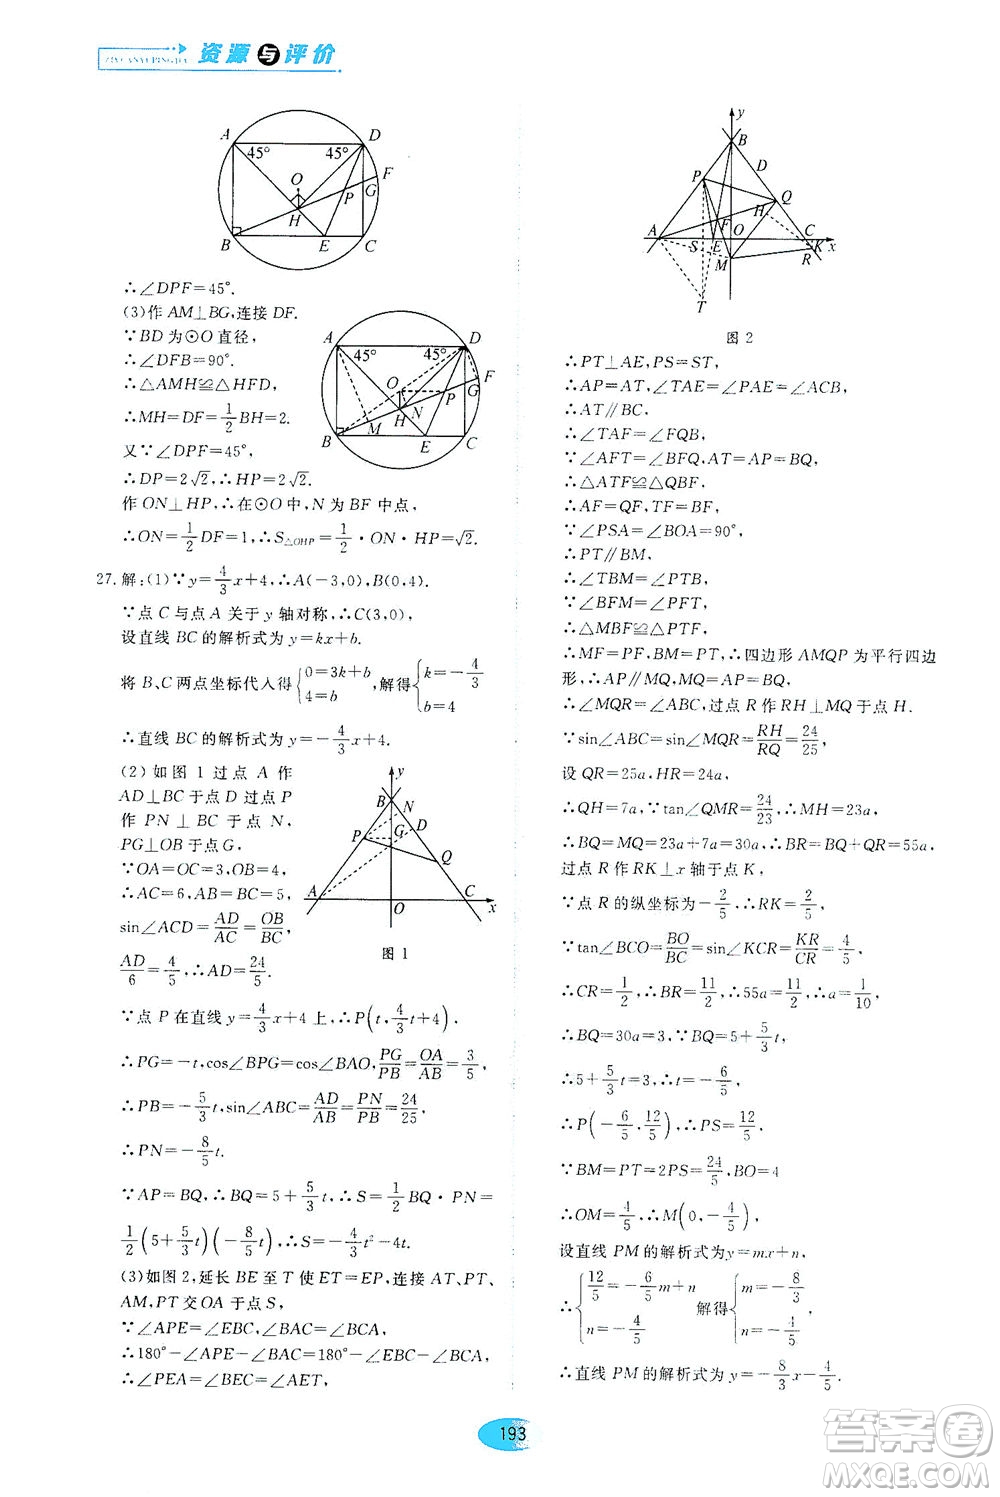 ZIYUANYUPINGJIA
资源与评价
A
D
45°
45°
F
O
G
P
H
B
E
C
∴∠DPF=45°.
(3)作 AM⊥BG,连接 DF.
∵BD 为⊙O 直径,
∴∠DFB=90°.
∴△AMH≌△HFD,
∴MH=DF=1/2BH=2.
又∵∠DPF=45°,
∴DP=2√2,∴HP=2√2.
作 ON⊥HP,∴在⊙O 中,N 为 BF 中点,
∴ON=1/2DF=1,∴S△OHP=1/2·ON·HP=√2.
A
D
45°
45°
F
O
G
P
N
M
H
B
E
C
27.解:(1)∵y=4/3x+4,∴A(-3,0),B(0,4).
∵点 C 与点 A 关于 y 轴对称,∴C(3,0),
设直线 BC 的解析式为 y=kx+b.
将 B、C 两点坐标代入得{0=3k+b 4=b,解得{k=-4/3 b=4
∴直线 BC 的解析式为 y=-4/3x+4.
(2)如图 1 过点 A 作
AD⊥BC 于点 D 过点 P
作 PN⊥BC 于点 N,
PG⊥OB 于点 G,
∵OA=OC=3,
∴AC=6,AB=BC=5,
sin∠ACD=AD/AC=OB/BC,
AD/6=4/5,∴AD=24/5.
y
B
N
D
P
G
Q
A
O
C
x
图 1
∵点 P 在直线 y=4/3x+4 上,∴P(t,4/3t+4),
∴PG=-t,cos∠BPG=cos∠BAO,PG/PB=OA/AB=3/5,
∴PB=-5/3t,sin∠ABC=AD/AB=PN/PB=24/25,
∴PN=-8/5t.
∵AP=BQ,∴BQ=5+5/3t,∴S=1/2BQ·PN=
1/2(5+5/3t)(-8/5t),∴S=-4/3t²-4t.
(3)如图 2,延长 BE 至 T 使 ET=EP,连接 AT,PT,
AM,PT 交 OA 于点 S,
∵∠APE=∠EBC,∠BAC=∠BCA,
∴180°-∠APE-∠BAC=180°-∠EBC-∠BCA,
∴∠PEA=∠BEC=∠AET,
y
B
D
P
Q
H
F
A
S
E
O
C
K
x
M
R
T
图 2
∴PT⊥AE,PS=ST,
∴AP=AT,∠TAE=∠PAE=∠ACB,
∴AT∥BC,
∴∠TAF=∠FQB,
∵∠AFT=∠BFQ,AT=AP=BQ,
∴△ATF≌△QBF,
∴AF=QF,TF=BF,
∵∠PSA=∠BOA=90°,
∴PT∥BM,
∴∠TBM=∠PTB,
∵∠BFM=∠PFT,
∴△MBF≌△PTF,
∴MF=PF,BM=PT,∴四边形 AMQP 为平行四边
形,∴AP∥MQ,MQ=AP=BQ,
∴∠MQR=∠ABC,过点 R 作 RH⊥MQ 于点 H.
∵sin∠ABC=sin∠MQR=RH/RQ=24/25,
设 QR=25a,HR=24a,
∴QH=7a,∵tan∠QMR=24/23,∴MH=23a,
∴BQ=MQ=23a+7a=30a,∴BR=BQ+QR=55a,
过点 R 作 RK⊥x 轴于点 K,
∵点 R 的纵坐标为-2/5,∴RK=2/5,
∵tan∠BCO=BO/BC=sin∠KCR=RK/CR=4/5,
∴CR=1/2,∴BR=11/2,∴55a=11/2,∴a=1/10,
∴BQ=30a=3,∵BQ=5+5/3t,
∴5+5/3t=3,∴t=-6/5,
∴P(-6/5,12/5),∴PS=12/5,
∵BM=PT=2PS=24/5,BO=4
∴OM=4/5,∴M(0,-4/5),
设直线 PM 的解析式为y=mx+n,
∴{12/5=-6/5m+n n=-4/5 解得{m=-8/3 n=-4/5,
∴直线 PM 的解析式为 y=-8/3x-4/5.
193
答案圈
MXQE.COM